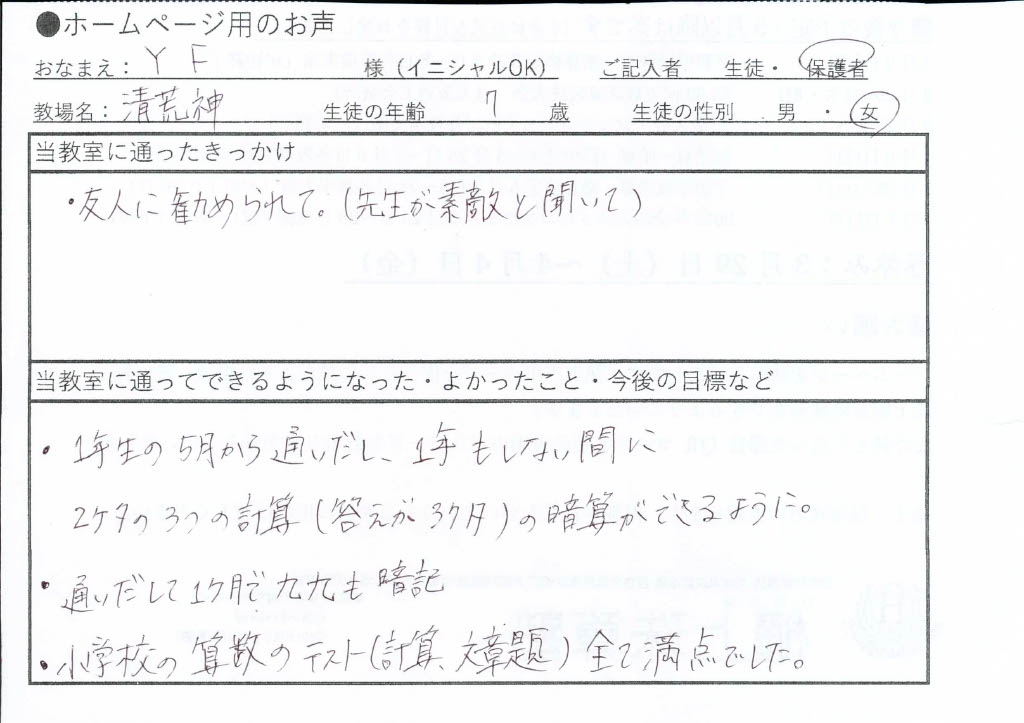 ●ホームページ用のお声
おなまえ： Y F 様（イニシャルOK） ご記入者 生徒・ 保護者
教場名：清荒神 生徒の年齢 7 歳 生徒の性別 男 ・ 女
当教室に通ったきっかけ
・友人に勧められて。(先生が素敵と聞いて)
当教室に通ってできるようになった・よかったこと・今後の目標など
・1年生の5月から通いだし、1年もしない間に
2ケタの3つの計算(答えが3ケタ)の暗算ができるように。
・通いだして1ヶ月で九九も暗記
・小学校の算数のテスト(計算、文章題)全て満点でした。
春休み：3月29日（土）～4月4日（金）